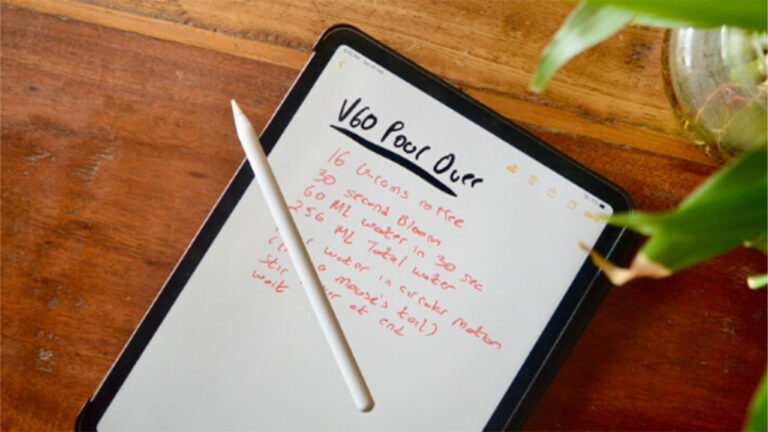 V60 Pour Over
16 Grams coffee
30 second Bloom
60 ML water in 30 sec
256 ML Total water
water in circular motion
a mouse's tail)
stir at end
wait